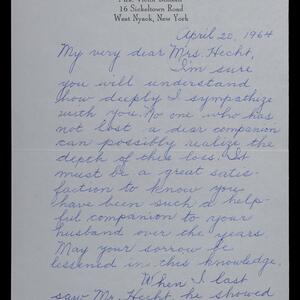 16 Sickeltown Road
West Nyack, New York
April 20, 1964
My very dear Mrs. Hecht,
I'm sure
you will understand
how deeply I sympathize
with you. No one who has
not lost a dear companion
can possibly realize the
depth of this loss. It
must be a great satis-
faction to know you
have been such a help-
ful companion to your
husband over the years
May your sorrow be
lessened in this knowledge.
When I last
saw Mr. Hecht he showed